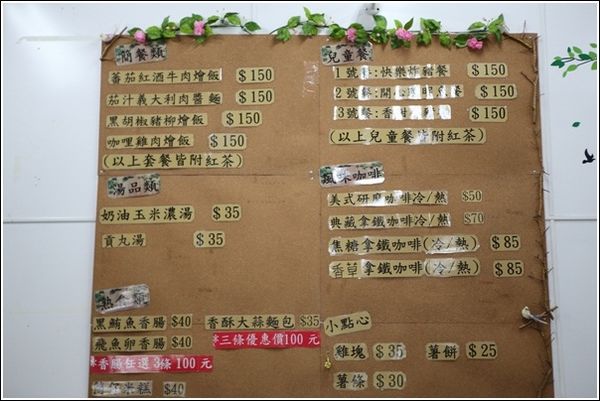 簡餐類
蕃茄紅酒牛肉燴飯 $150
茄汁義大利肉醬麵 $150
黑胡椒豬柳燴飯 $150
咖哩雞肉燴飯 $150
(以上套餐皆附紅茶)
湯品類
奶油玉米濃湯 $35
貢丸湯 $35
黑鮪魚香腸 $40
飛魚卵香腸 $40
香腸任選3條100元
米糕 $40
香酥大蒜麵包 $35
三條優惠價100元
兒童餐
1號餐:快樂炸豬餐 $150
2號餐:開心 魚餐 $150
3號餐:香 $150
(以上兒童餐皆附紅茶)
風味咖啡
美式研磨咖啡冷/熱 $50
典藏拿鐵咖啡冷/熱 $70
焦糖拿鐵咖啡(冷/熱) $85
香草拿鐵咖啡(冷/熱) $85
小點心
雞塊 $35 薯餅 $25
薯條 $30